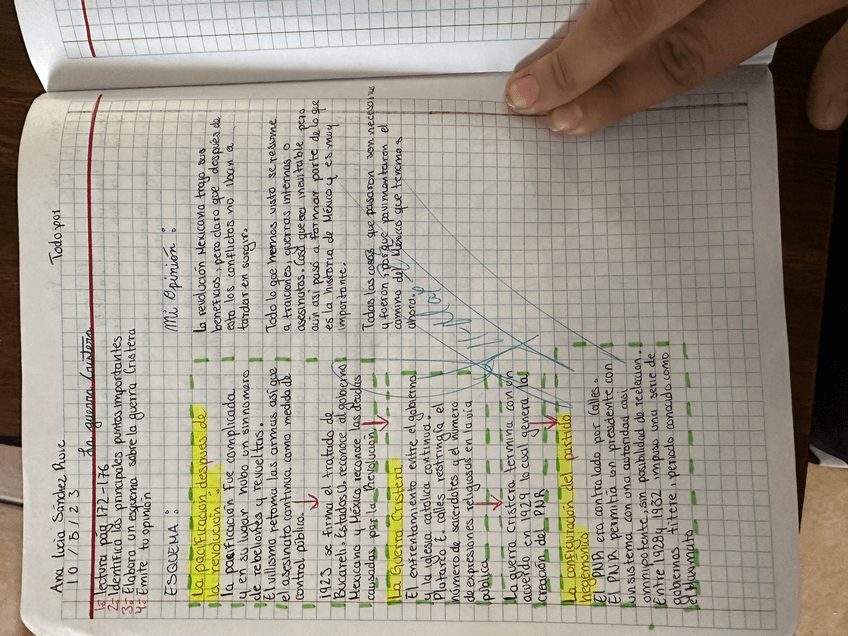 Ana Lucía Sánchez
10/5/23
Todo por
La guerra Cristera
1= Lectura pág 172-176
2= Identifica las principales puntos importantes
3= Elabora un esquema sobre la guerra Cristera
4= Emite tu opinión
ESQUEMA:
La pacificación despues de
la revolución:
la pacificación fue complicada
y en su lugar hubo un sin numero
de rebeliones y revueltas.
El villismo retoma las armas así que
el asesinato continua como medida de
control público.
1923 se firma el tratado de
Bucareli, Estados U. reconoce al gobierno
Mexicano y México reconoce las deudas
causadas por la Revolución.
La Guerra Cristera
El enfrentamiento entre el gobierno
y la iglesia católica continua.
Plutarco E. calles restringía el
número de sacerdotes y el número
de expresiones religiosas en la vía
pública
La guerra Cristera termina con un
acuerdo en 1929 lo cual genera la
creación del PNR
La configuración del partido
hegemonico
El PNR era controlado por Calles.
El PNR permitiría un presidente con
un sistema con una autoridad casi
omnipotente, sin posibilidad de reelección.
Entre 1928 y 1932 impuso una serie de
gobiernos titere, periodo conocido como
el Maximato
Mi Opinión:
La revolución Mexicana trajo sus
beneficios, pero claro que después de
esta los conflictos no iban a
tardar en surgir.
Todo lo que hemos visto se resume
a traiciones, guerras internas o
asesinatos. Cosa que era inevitable pero
aún así pasó a formar parte de lo que
es la historia de México y es muy
importante.
Todas las cosas que pasaron son necesarias
y fueron, porque pavimentaron el
camino del México que tenemos
ahora.